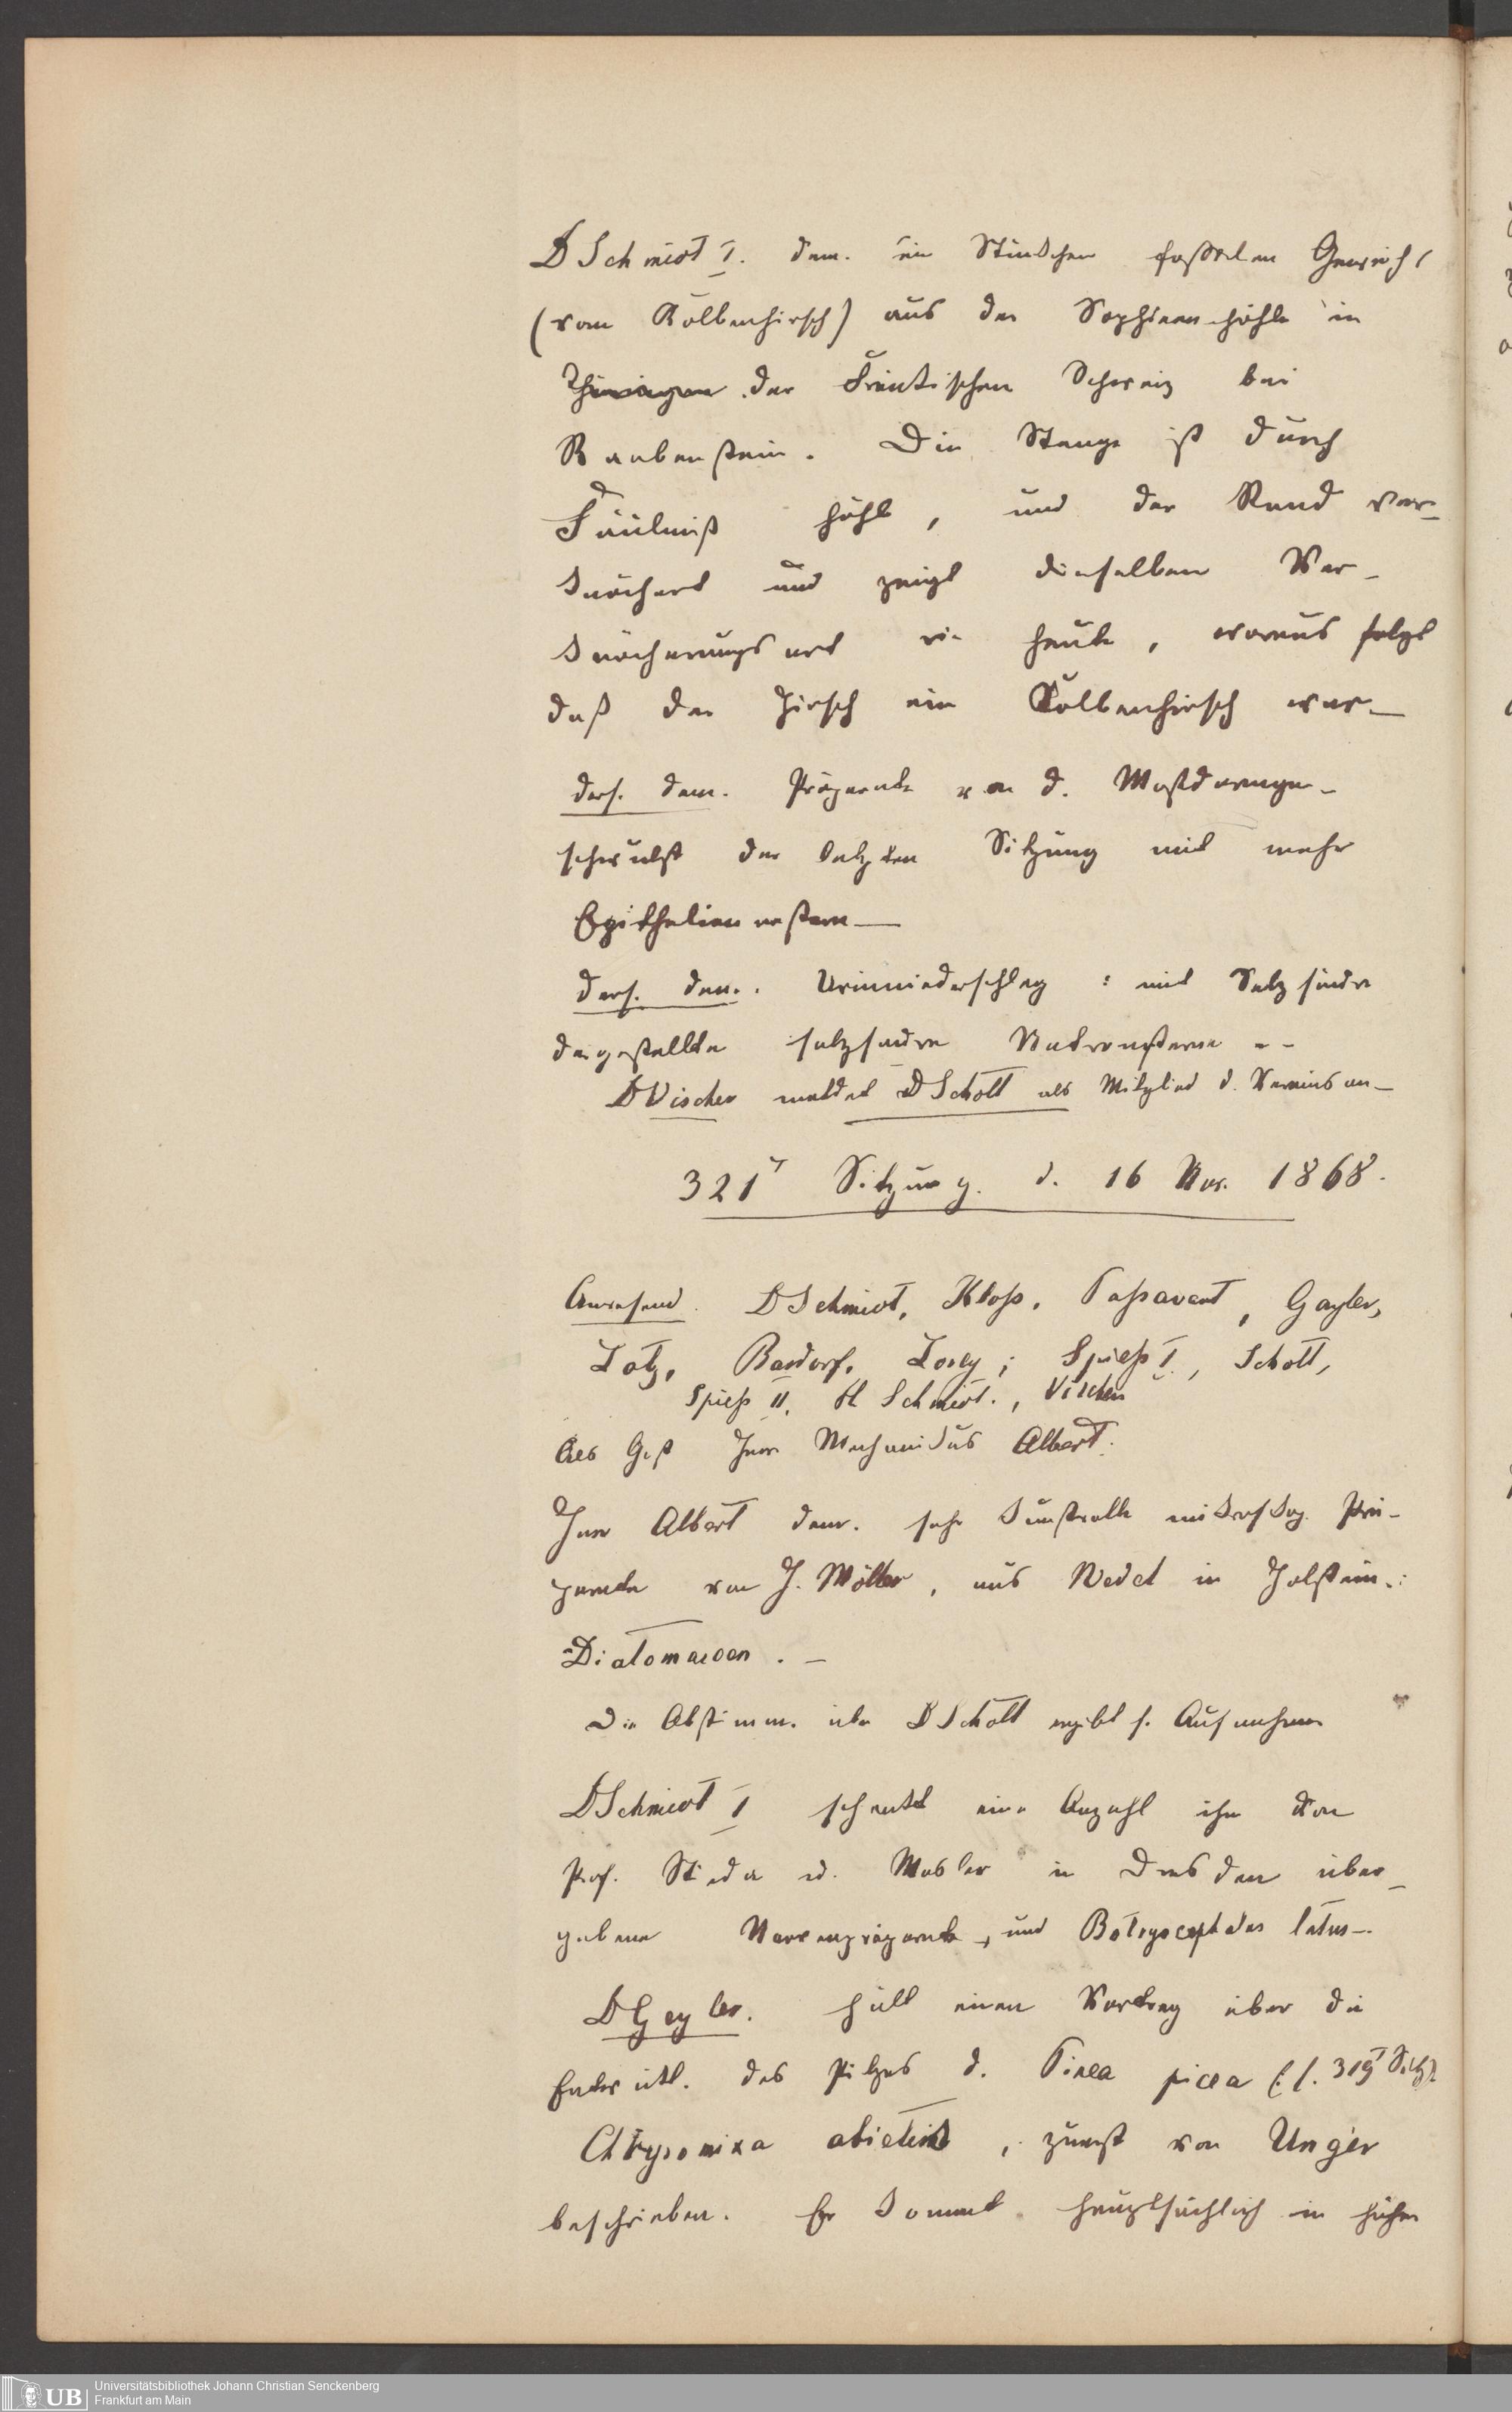 D Schmidt I. dem. ein Stückchen fossilen Geweihs
(vom Kolbenhirsch) aus der Sophienhöhle in
Thüringen der Fränkischen Schweiz bei
Rabenstein. Die Stange ist durch
Fäulniß hohl, und der Rand ver-
knöchert und zeigt dieselben Ver-
knöcherungsart wie heute, woraus folgt
daß der Hirsch ein Kolbenhirsch war_
ders. dem. Präparate von d. Mastdarmge-
schwulst der letzten Sitzung mit mehr
Epitheliennestern_
ders. dem. Urinniederschlag : mit Salzsäure
dargestellte salzsaure
D Vischer meldet D Schott als Mitglied d. Vereins an_
321T Sitzung. d. 16 Nov. 1868.
Anwesend. D Schmidt, Kloß, Passavant, Geyler,
Lotz, Bardorf, Lorey; Spieß I., Schott,
Spieß II. H Schmidt., Vischer
Als Gast Herr Mechanikus Albert.
Herr Albert dem. sehr kunstvolle mikroskop. Prä-
parate von J. Möller, aus Wedel in Holstein.:
Diatomaceen. _
Die Abstimm. über D Schott ergibt s. Aufnahme
D Schmidt I schenkt eine Anzahl ihm von
Prof. Stieda u. in Dresden über-
gebene Nervenpräparate, und Botryocephalus latus_.
D Geyler. hält einen Vortrag über die
Entwickl. des Pilzes d. Pinea picea (: s. 319T Sitz)
Chrysomixa abietis, zuerst von Unger
beschrieben. Er kommt hauptsächlich in hohen
Universitätsbibliothek Johann Christian Senckenberg
Frankfurt am Main
UB